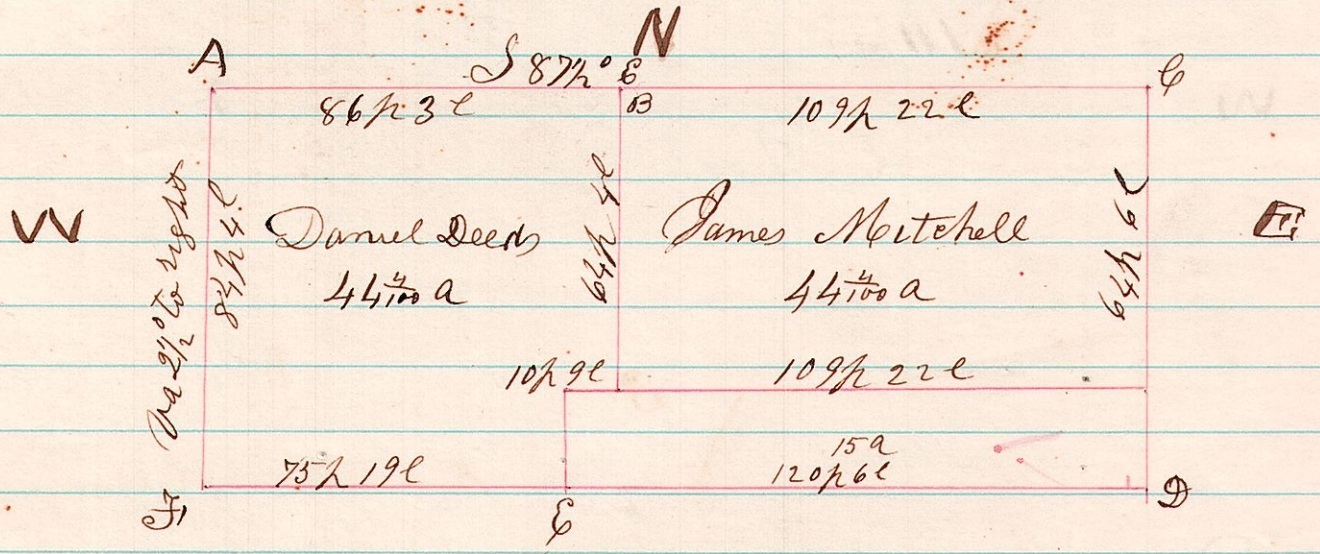 N
A
S 87½° E
C
86p 3l
B
109p 22l
W
Va 2½° to right
84p 4l
Daniel Deeds
64p 4l
James Mitchell
64p 6l
E
44 4/100 a
44 4/100 a
10p 9l
109p 22l
15a
75p 19l
120p 6l
F
E
D